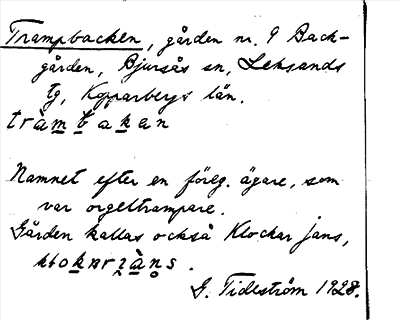 Trampbacken, gården nr. 9 Back-
gården, Bjursås sn, Leksands
tg, Kopparbergs län.
tràmbakan
Namnet efter en föreg. ägare, som
var orgeltrampare.
Gården kallas också Klockar Jans,
G. Tideström 1928.